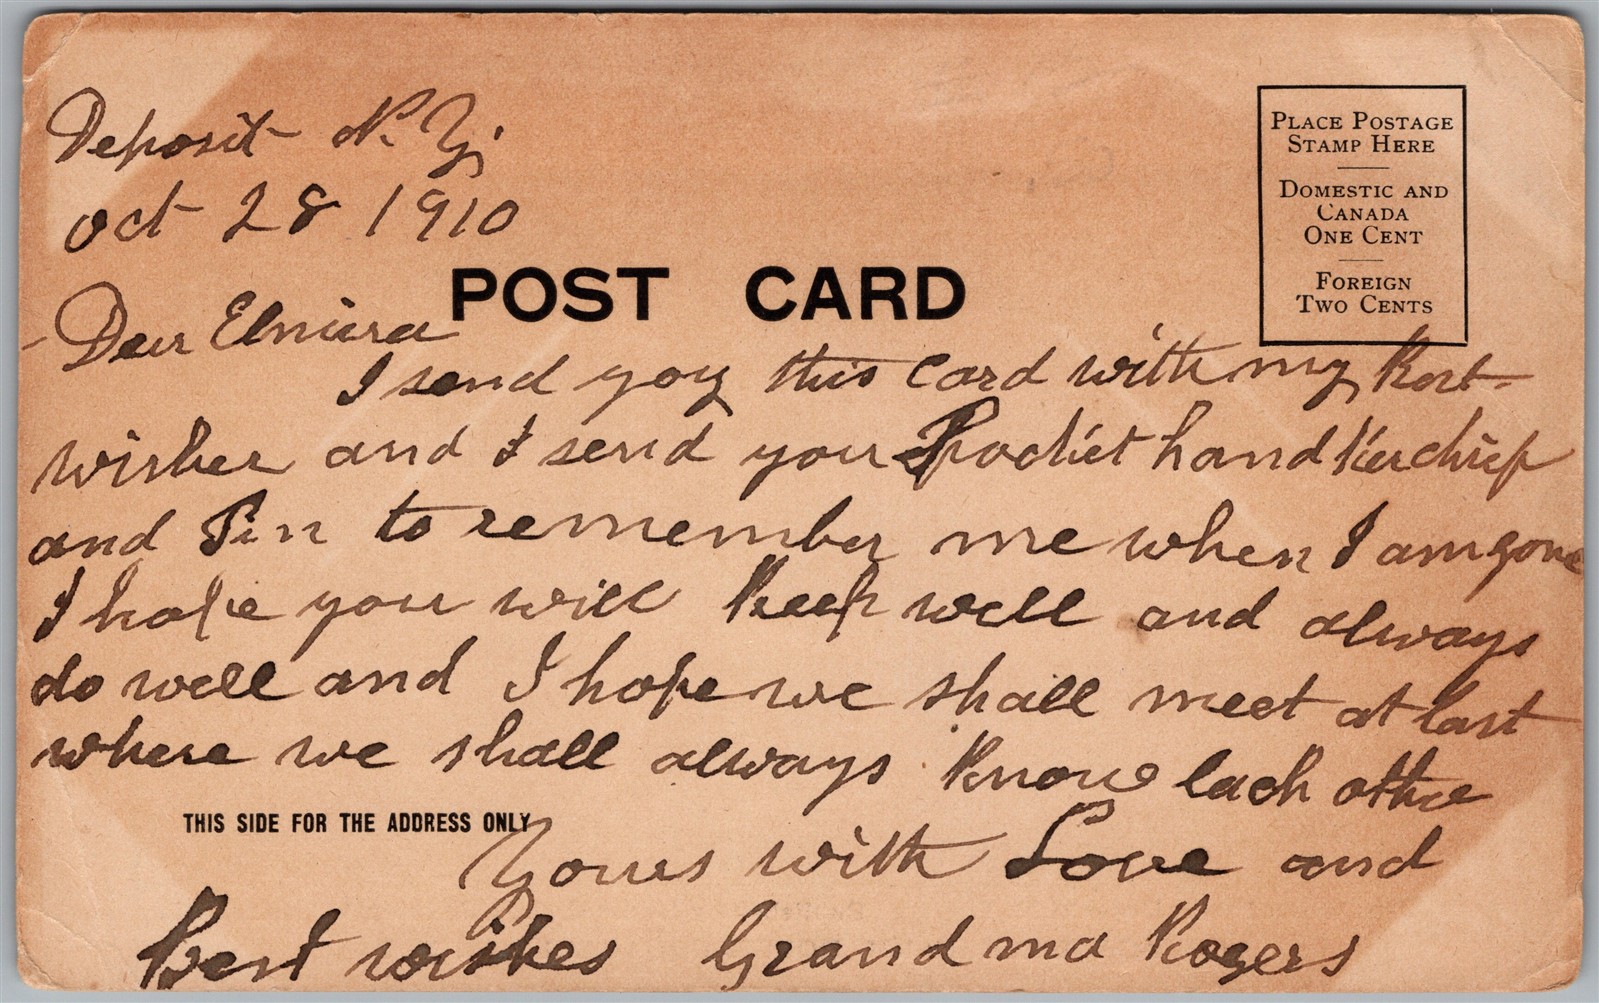 Deposit N. Y.
Oct 28 1910
PLACE POSTAGE
STAMP HERE
DOMESTIC AND
CANADA
ONE CENT
FOREIGN
TWO CENTS
POST CARD
Dear Elmira
I send you this Card with my Best
wishes and I send you Pocket handkerchief
and Pin to remember me when I am gone
I hope you will Keep well and always
do well and I hope we shall meet at last
where we shall always Know each other
THIS SIDE FOR THE ADDRESS ONLY
Yours with Love and
Best wishes Grandma Rogers